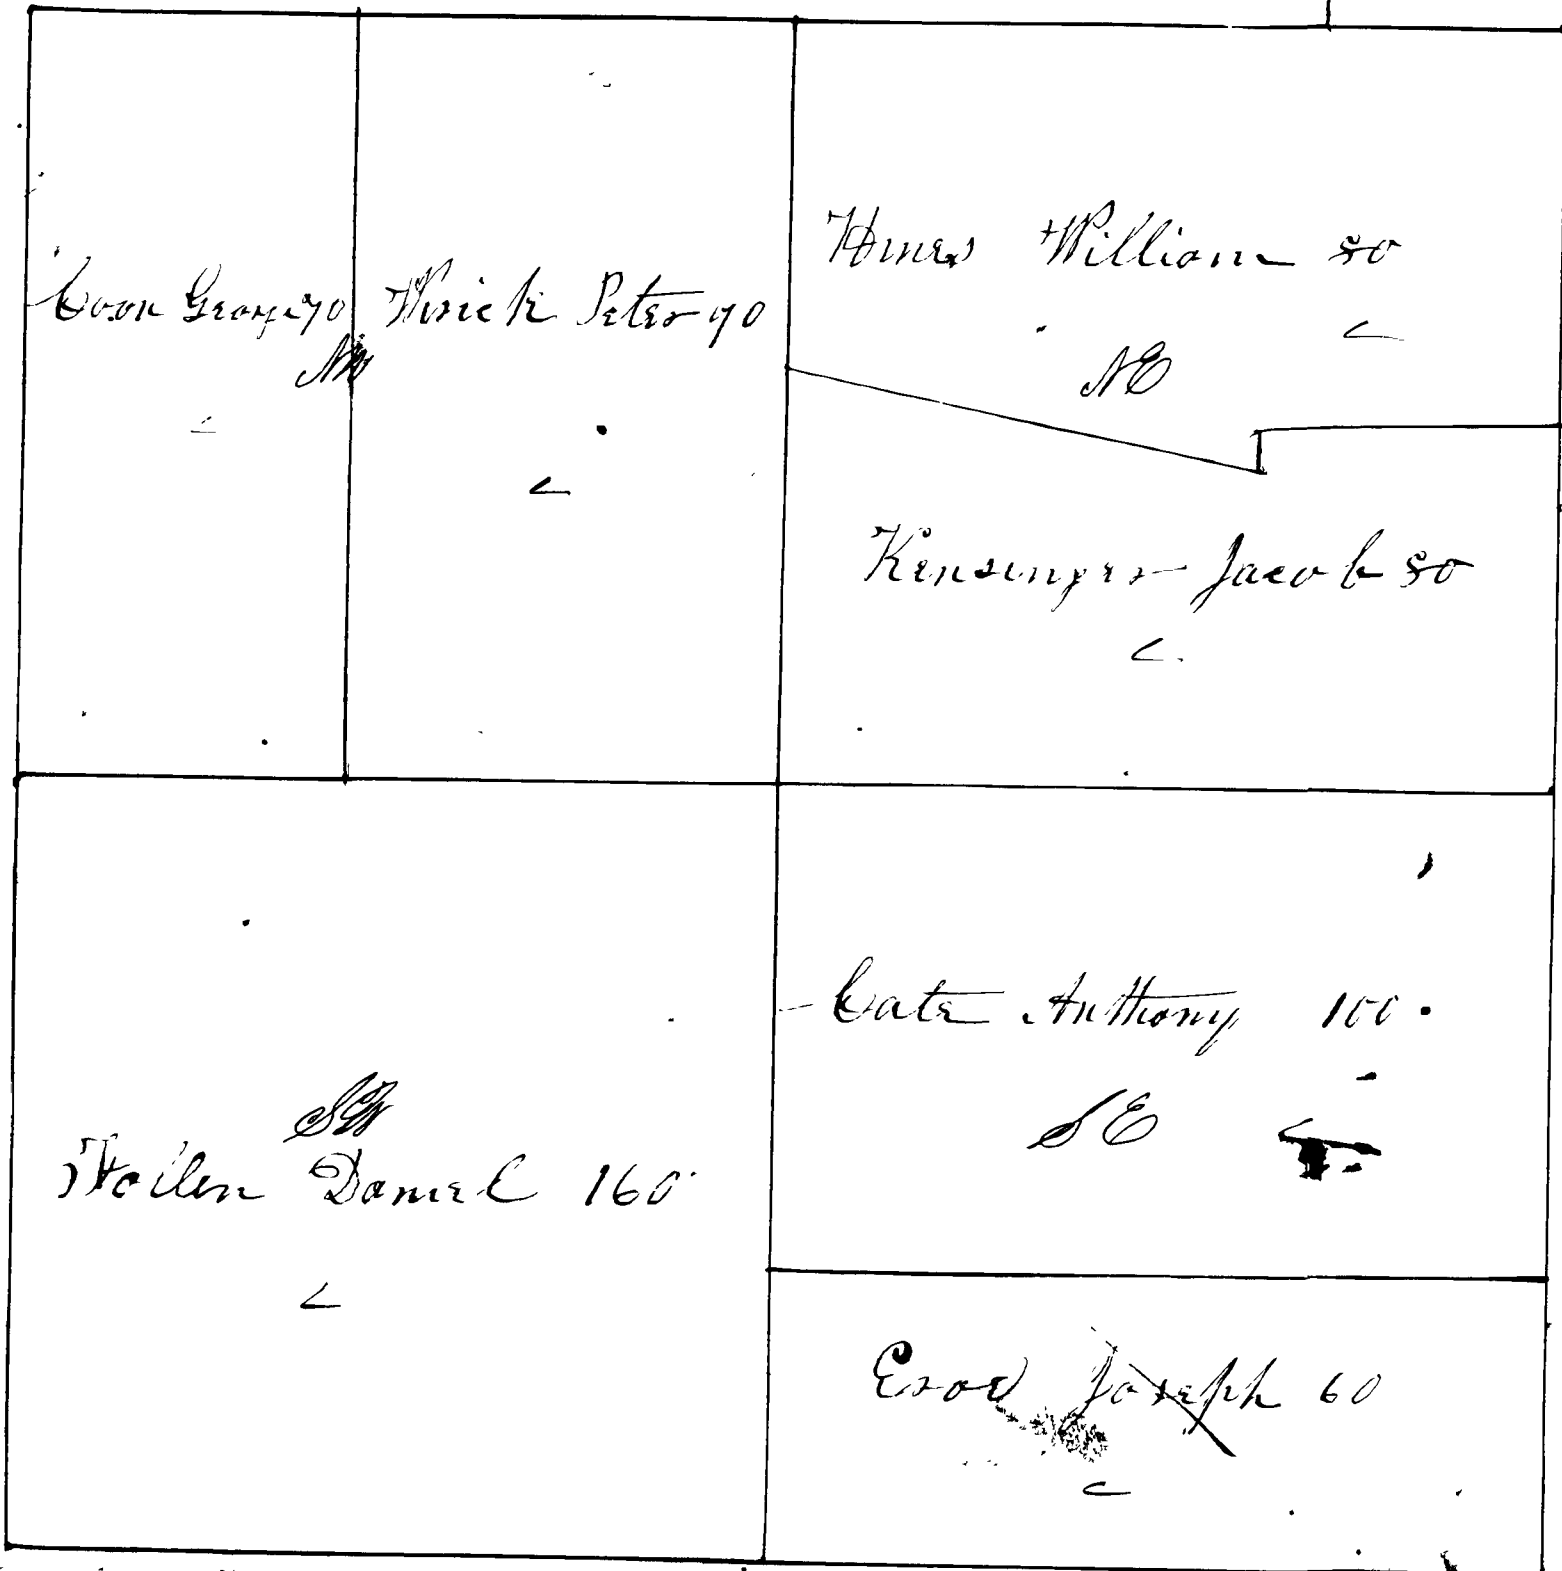 Coon George 70
Wirick Peter 90
NW
Hines William 80
NE
Kensinger Jacob 80
SW
Daniel 160
Cate Anthony 100
SE
Joseph 60